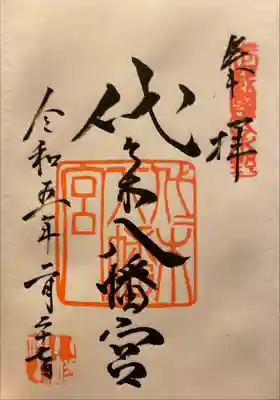 奉拝
代々木八幡宮
令和五年二月二十七日
代々木八幡宮